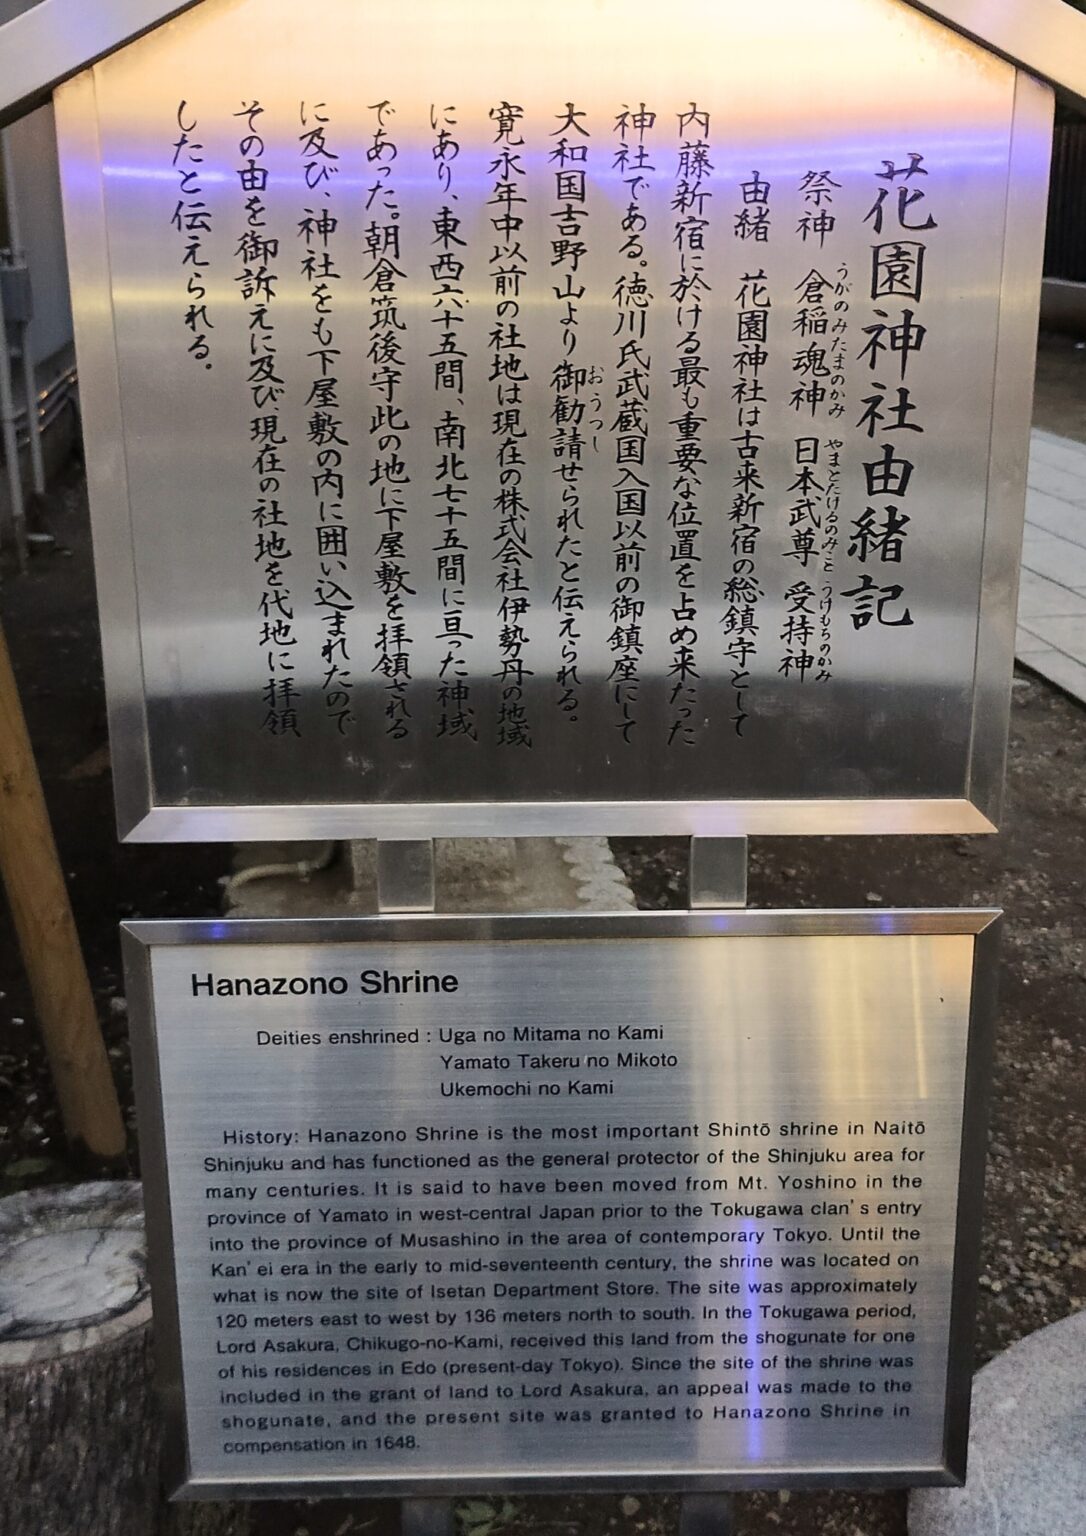 花園神社由緒記
祭神 倉稲魂神 日本武尊 受持神
うがのみたまのかみ やまとたけるのみこと うけもちのかみ
由緒 花園神社は古来新宿の総鎮守として
内藤新宿に於ける最も重要な位置を占め来たった
神社である。徳川氏武蔵国入国以前の御鎮座にして
大和国吉野山より御勧請せられたと伝えられる。
おうつし
寛永年中以前の社地は現在の株式会社伊勢丹の地域
にあり、東西六十五間、南北七十五間に亘った神域
であった。朝倉筑後守此の地に下屋敷を拝領される
に及び、神社をも下屋敷の内に囲い込まれたので
その由を御訴えに及び、現在の社地を代地に拝領
したと伝えられる。
Hanazono Shrine
Deities enshrined : Uga no Mitama no Kami
Yamato Takeru no Mikoto
Ukemochi no Kami
History: Hanazono Shrine is the most important Shintō shrine in Naitō
Shinjuku and has functioned as the general protector of the Shinjuku area for
many centuries. It is said to have been moved from Mt. Yoshino in the
province of Yamato in west-central Japan prior to the Tokugawa clan's entry
into the province of Musashino in the area of contemporary Tokyo. Until the
Kan'ei era in the early to mid-seventeenth century, the shrine was located on
what is now the site of Isetan Department Store. The site was approximately
120 meters east to west by 136 meters north to south. In the Tokugawa period,
Lord Asakura, Chikugo-no-Kami, received this land from the shogunate for one
of his residences in Edo (present-day Tokyo). Since the site of the shrine was
included in the grant of land to Lord Asakura, an appeal was made to the
shogunate, and the present site was granted to Hanazono Shrine in
compensation in 1648.